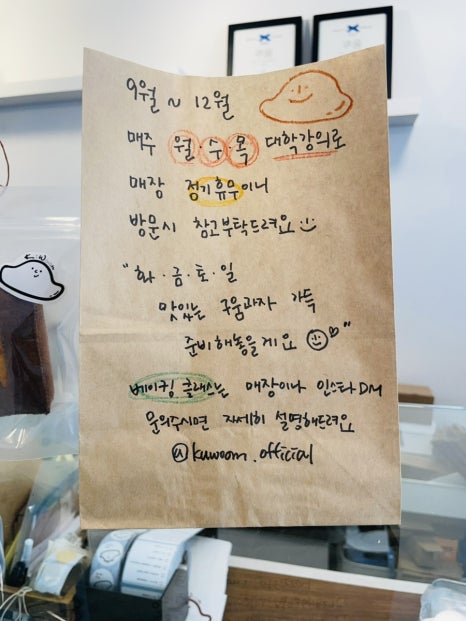 9월 ~ 12월
매주 월·수·목 대학강의로
매장 정기휴무이니
방문시 참고부탁드려요
"화·금·토·일
맛있는 구움과자 가득
준비해놓을게요"
베이킹 클래스는 매장이나 인스타DM
문의주시면 자세히 설명해드려요
@kuwoom.official